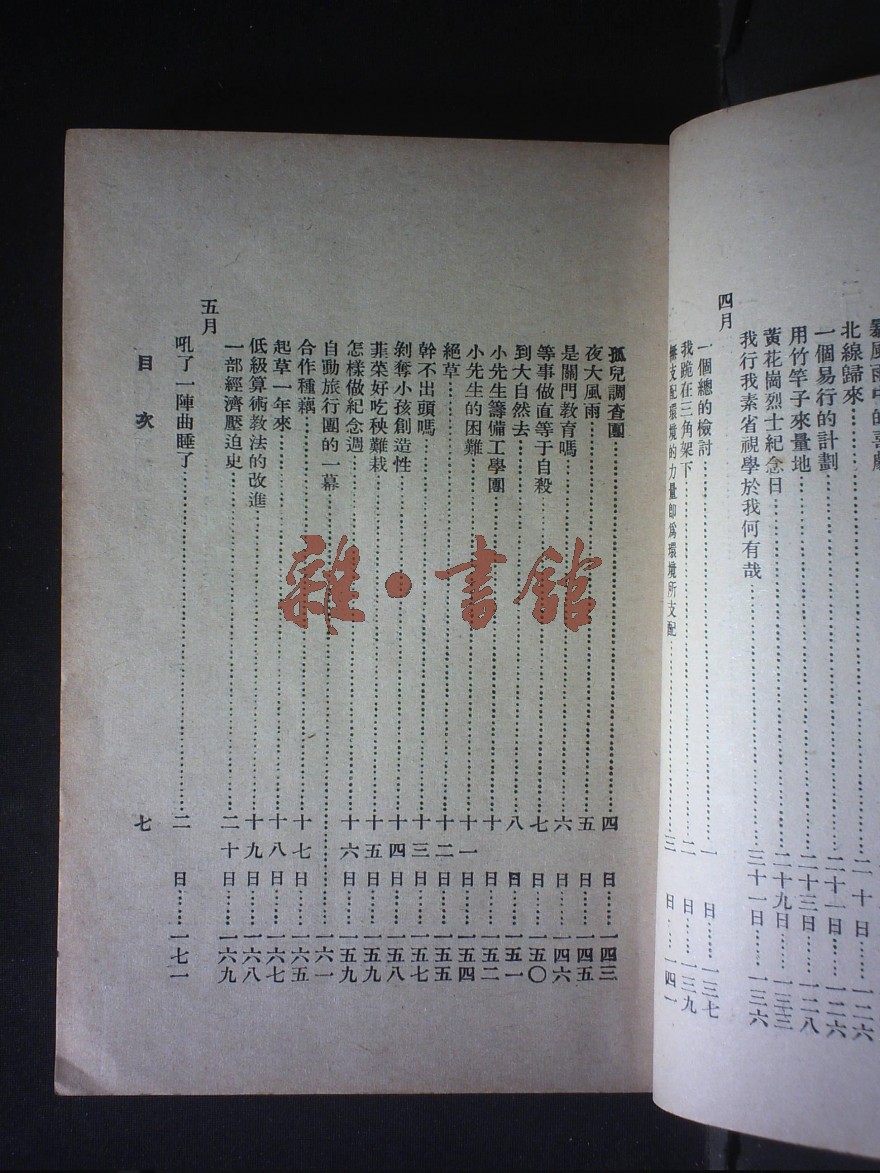 暴風雨中的喜
北線歸來……二十日……一二六
一個易行的計劃……二十一日……一二六
用竹竿子來量地……二十三日……一二八
黃花崗烈士紀念日……二十九日……一三三
我行我素省視學於我何有哉……三十一日……一三六
四月
一個總的檢討……一日……一三七
我跪在三角架下……二日……一三九
無支配環境的力量卽爲環境所支配……三日……一四一
孤兒調查團……四日……一四三
夜大風雨……五日……一四五
是關門教育嗎……六日……一四六
等事做直等于自殺……七日……一五〇
到大自然去……八日……一五一
小先生籌備工學團……十日……一五二
小先生的困難……十一日……一五四
絕草……十二日……一五五
幹不出頭嗎……十三日……一五七
剝奪小孩創造性……十四日……一五八
韮菜好吃秧難栽……十五日……一五九
怎樣做紀念週……十六日……一五九
自動旅行團的一幕……一六一
合作種藕……十七日……一六五
起草一年來……十八日……一六七
低級算術教法的改進……十九日……一六八
一部經濟壓迫史……二十日……一六九
五月
吼了一陣曲睡了……二日……一七一
目次 七
雜·書館